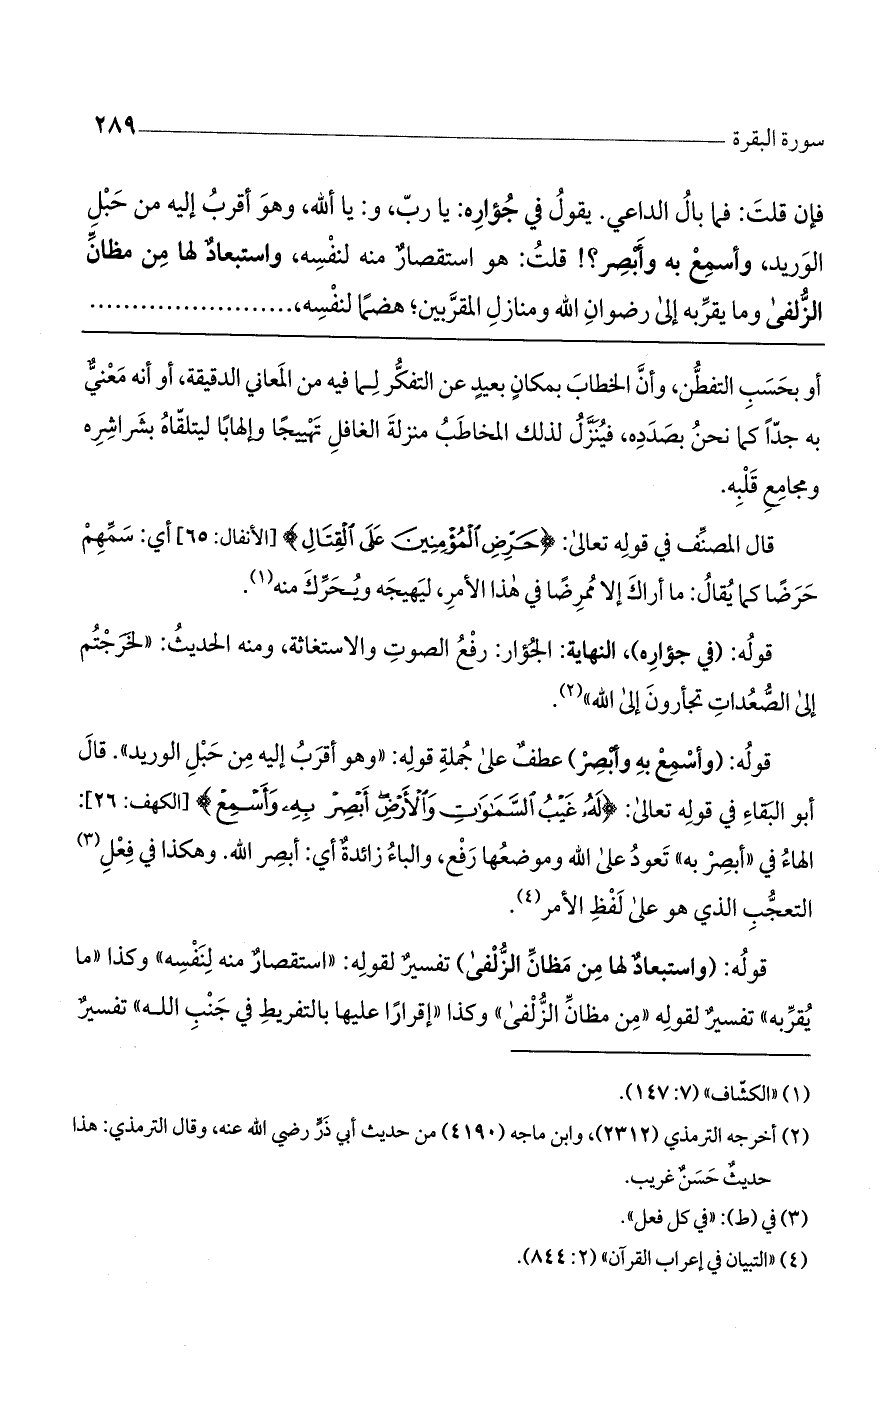 سورة البقرة ٢٨٩
فإن قلتَ: فما بالُ الداعي. يقولُ في جُؤارِه: يا ربّ، و: يا ألله، وهوَ أقربُ إليه من حَبْلِ
الوَريد، وأسمِعْ به وأَبْصِر؟! قلتُ: هو استقصارٌ منه لنفْسِه، واستبعادٌ لها مِن مظانِّ
الزُّلفىٰ وما يقربِّه إلىٰ رضوانِ الله ومنازلِ المقرَّبين؛ هضمًا لنفْسِه،........................
أو بحَسَبِ التفطُّن، وأنَّ الخطابَ بمكانٍ بعيدٍ عن التفكُّر لِـما فيه من المَعاني الدقيقة، أو أنه مَعْنيٌّ
به جدّاً كما نحنُ بصَدَدِه، فيُنَزَّلُ لذلك المخاطَبُ منزلةَ الغافلِ تَهْييجًا وإلهابًا ليتلقّاهُ بشَراشِرِه
ومجامِعِ قَلْبِه.
قال المصنِّف في قولِه تعالىٰ: ﴿حَرِّضِ ٱلْمُؤْمِنِينَ عَلَى ٱلْقِتَالِ﴾ [الأنفال: ٦٥] أي: سَمِّهِمْ
حَرَضًا كما يُقالُ: ما أراكَ إلا مُمرِضًا في هٰذا الأمرِ، ليَهيجَه ويُـحَرِّكَ منه(١).
قولُه: (في جؤارِه)، النهاية: الجُؤار: رفْعُ الصوتِ والاستغاثة، ومنه الحديثُ: «لَخَرَجْتُم
إلىٰ الصُّعُداتِ تجأرونَ إلىٰ الله»(٢).
قولُه: (وأسْمِعْ بهِ وأبْصِرْ) عطفٌ علىٰ جُملةِ قولِه: «وهو أقرَبُ إليه مِن حَبْلِ الوريد». قالَ
أبو البَقاءِ في قولِه تعالىٰ: ﴿لَهُۥ غَيْبُ ٱلسَّمَٰوَٰتِ وَٱلْأَرْضِۖ أَبْصِرْ بِهِۦ وَأَسْمِعْ﴾ [الكهف: ٢٦]:
الهاءُ في «أبصِرْ به» تَعودُ علىٰ الله وموضعُها رَفْع، والباءُ زائدةٌ أي: أبصِر الله. وهكذا في فِعْلِ(٣)
التعجُّبِ الذي هو علىٰ لَفْظِ الأمر(٤).
قولُه: (واستبعادٌ لها مِن مَظانِّ الزُّلْفىٰ) تفسيرٌ لقولِه: «استقصارٌ منه لِنَفْسِه» وكذا «ما
يُقرِّبه» تفسيرٌ لقوله «مِن مظانِّ الزُّلْفىٰ» وكذا «إقرارًا عليها بالتفريطِ في جَنْبِ اللـه» تفسيرٌ
(١) «الكشّاف» (٧: ١٤٧).
(٢) أخرجه الترمذي (٢٣١٢)، وابن ماجه (٤١٩٠) من حديث أبي ذَرٍّ رضي الله عنه، وقال الترمذي: هذا
حديثٌ حَسَنٌ غريب.
(٣) في (ط): «في كل فعل».
(٤) «التبيان في إعراب القرآن» (٢: ٨٤٤).